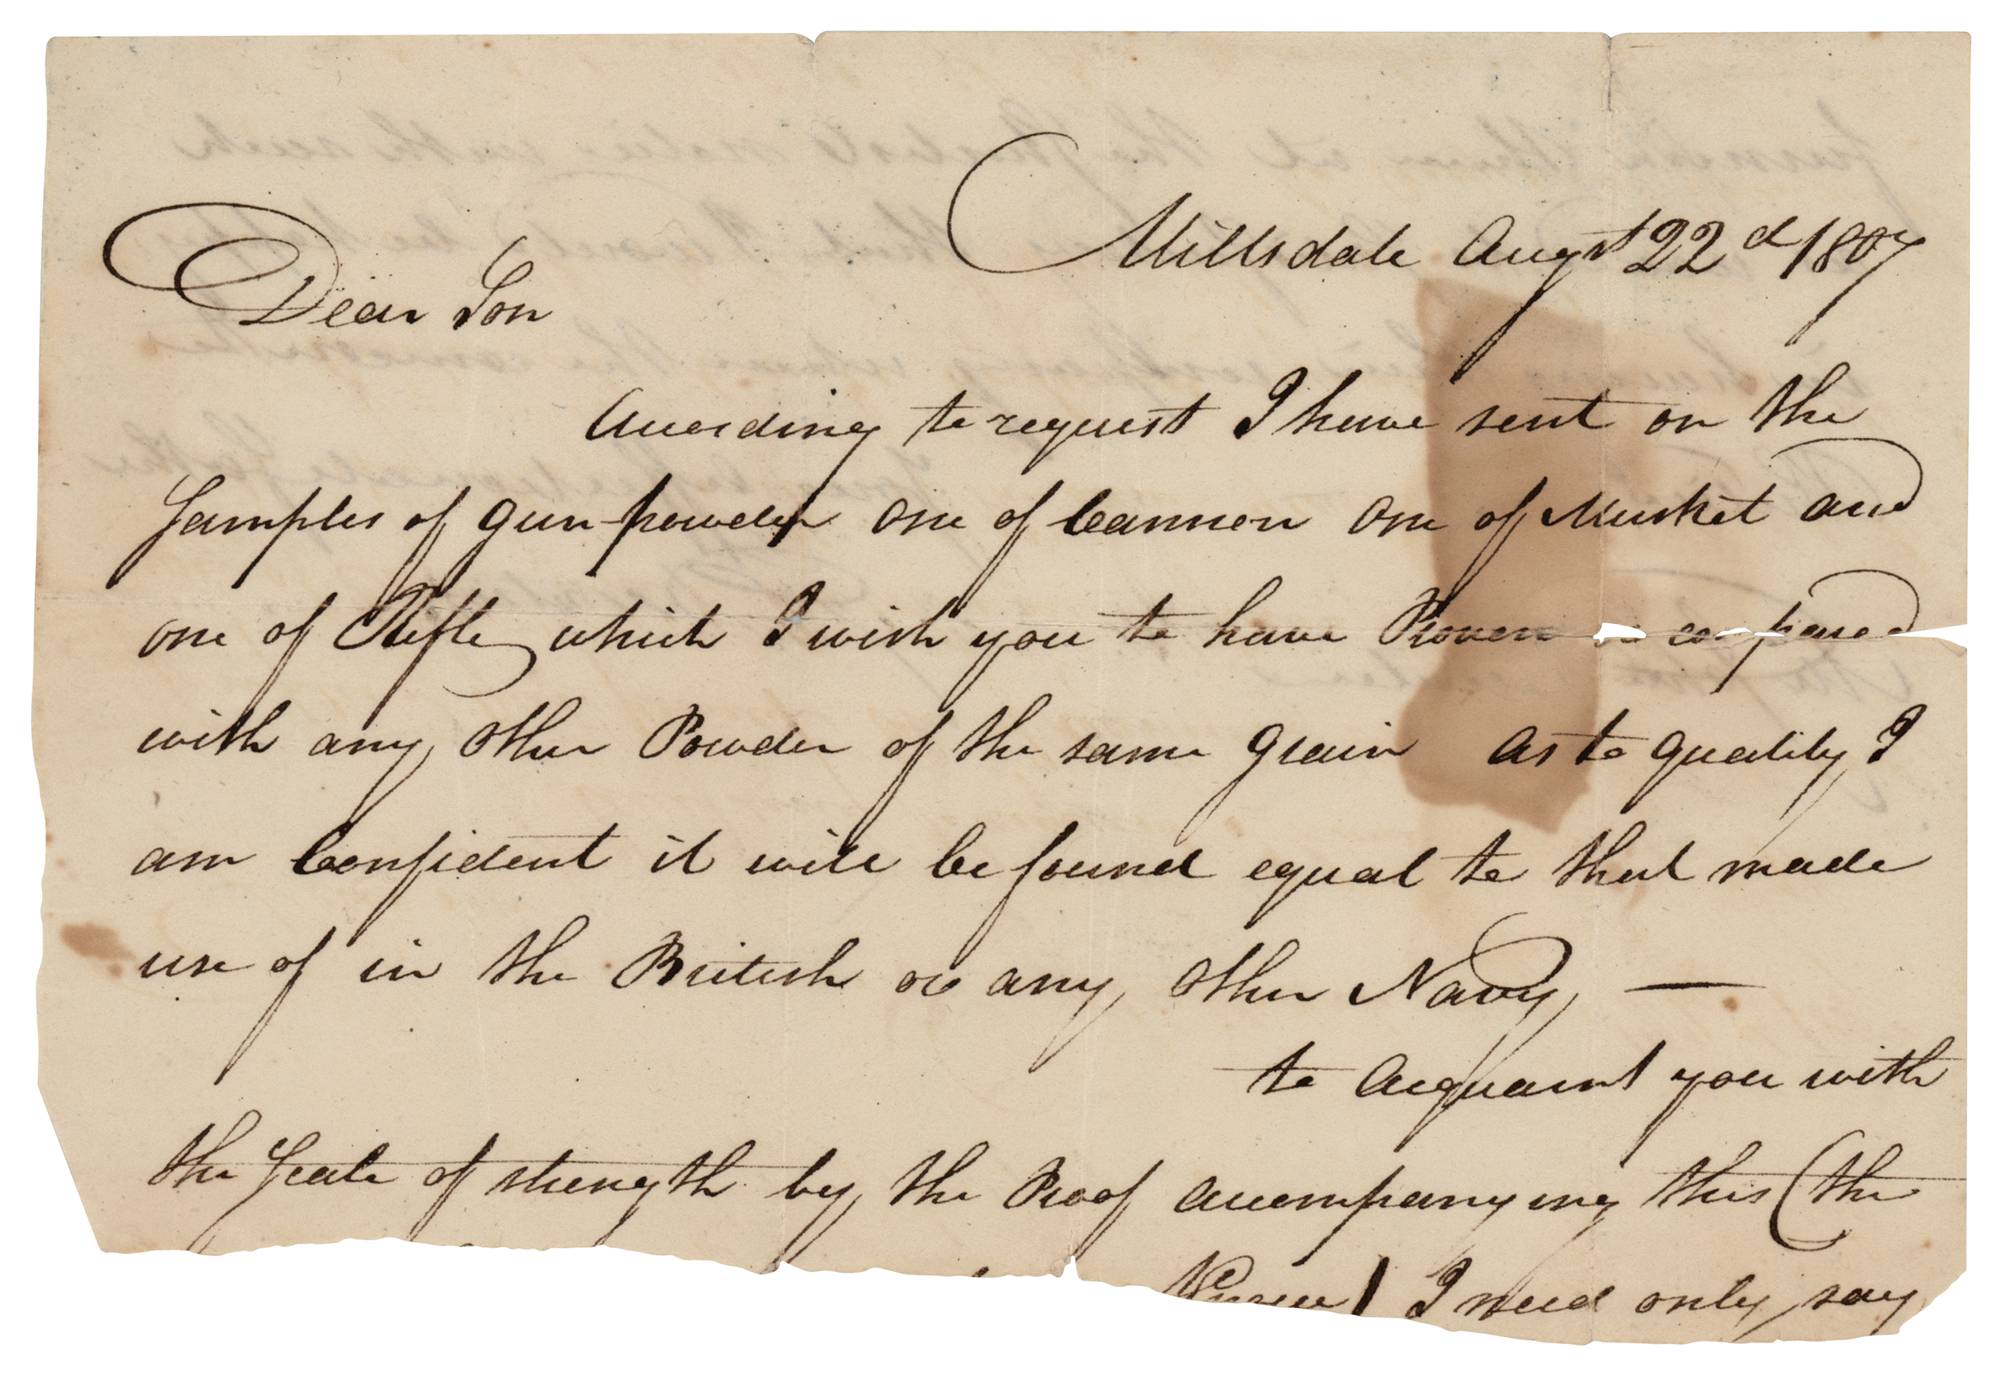 Millsdale Augst 22d 1807
Dear Son
According to request I have sent on the
Samples of gun-powder one of Cannon one of Musket and
one of Rifle which I wish you to have Proven or compared
with any other Powder of the same grain as to quality I
am Confident it will be found equal to that made
use of in the British or any other Navy —
to Acquaint you with
the Scale of strength by the Proof accompanying this (the
) I need only say